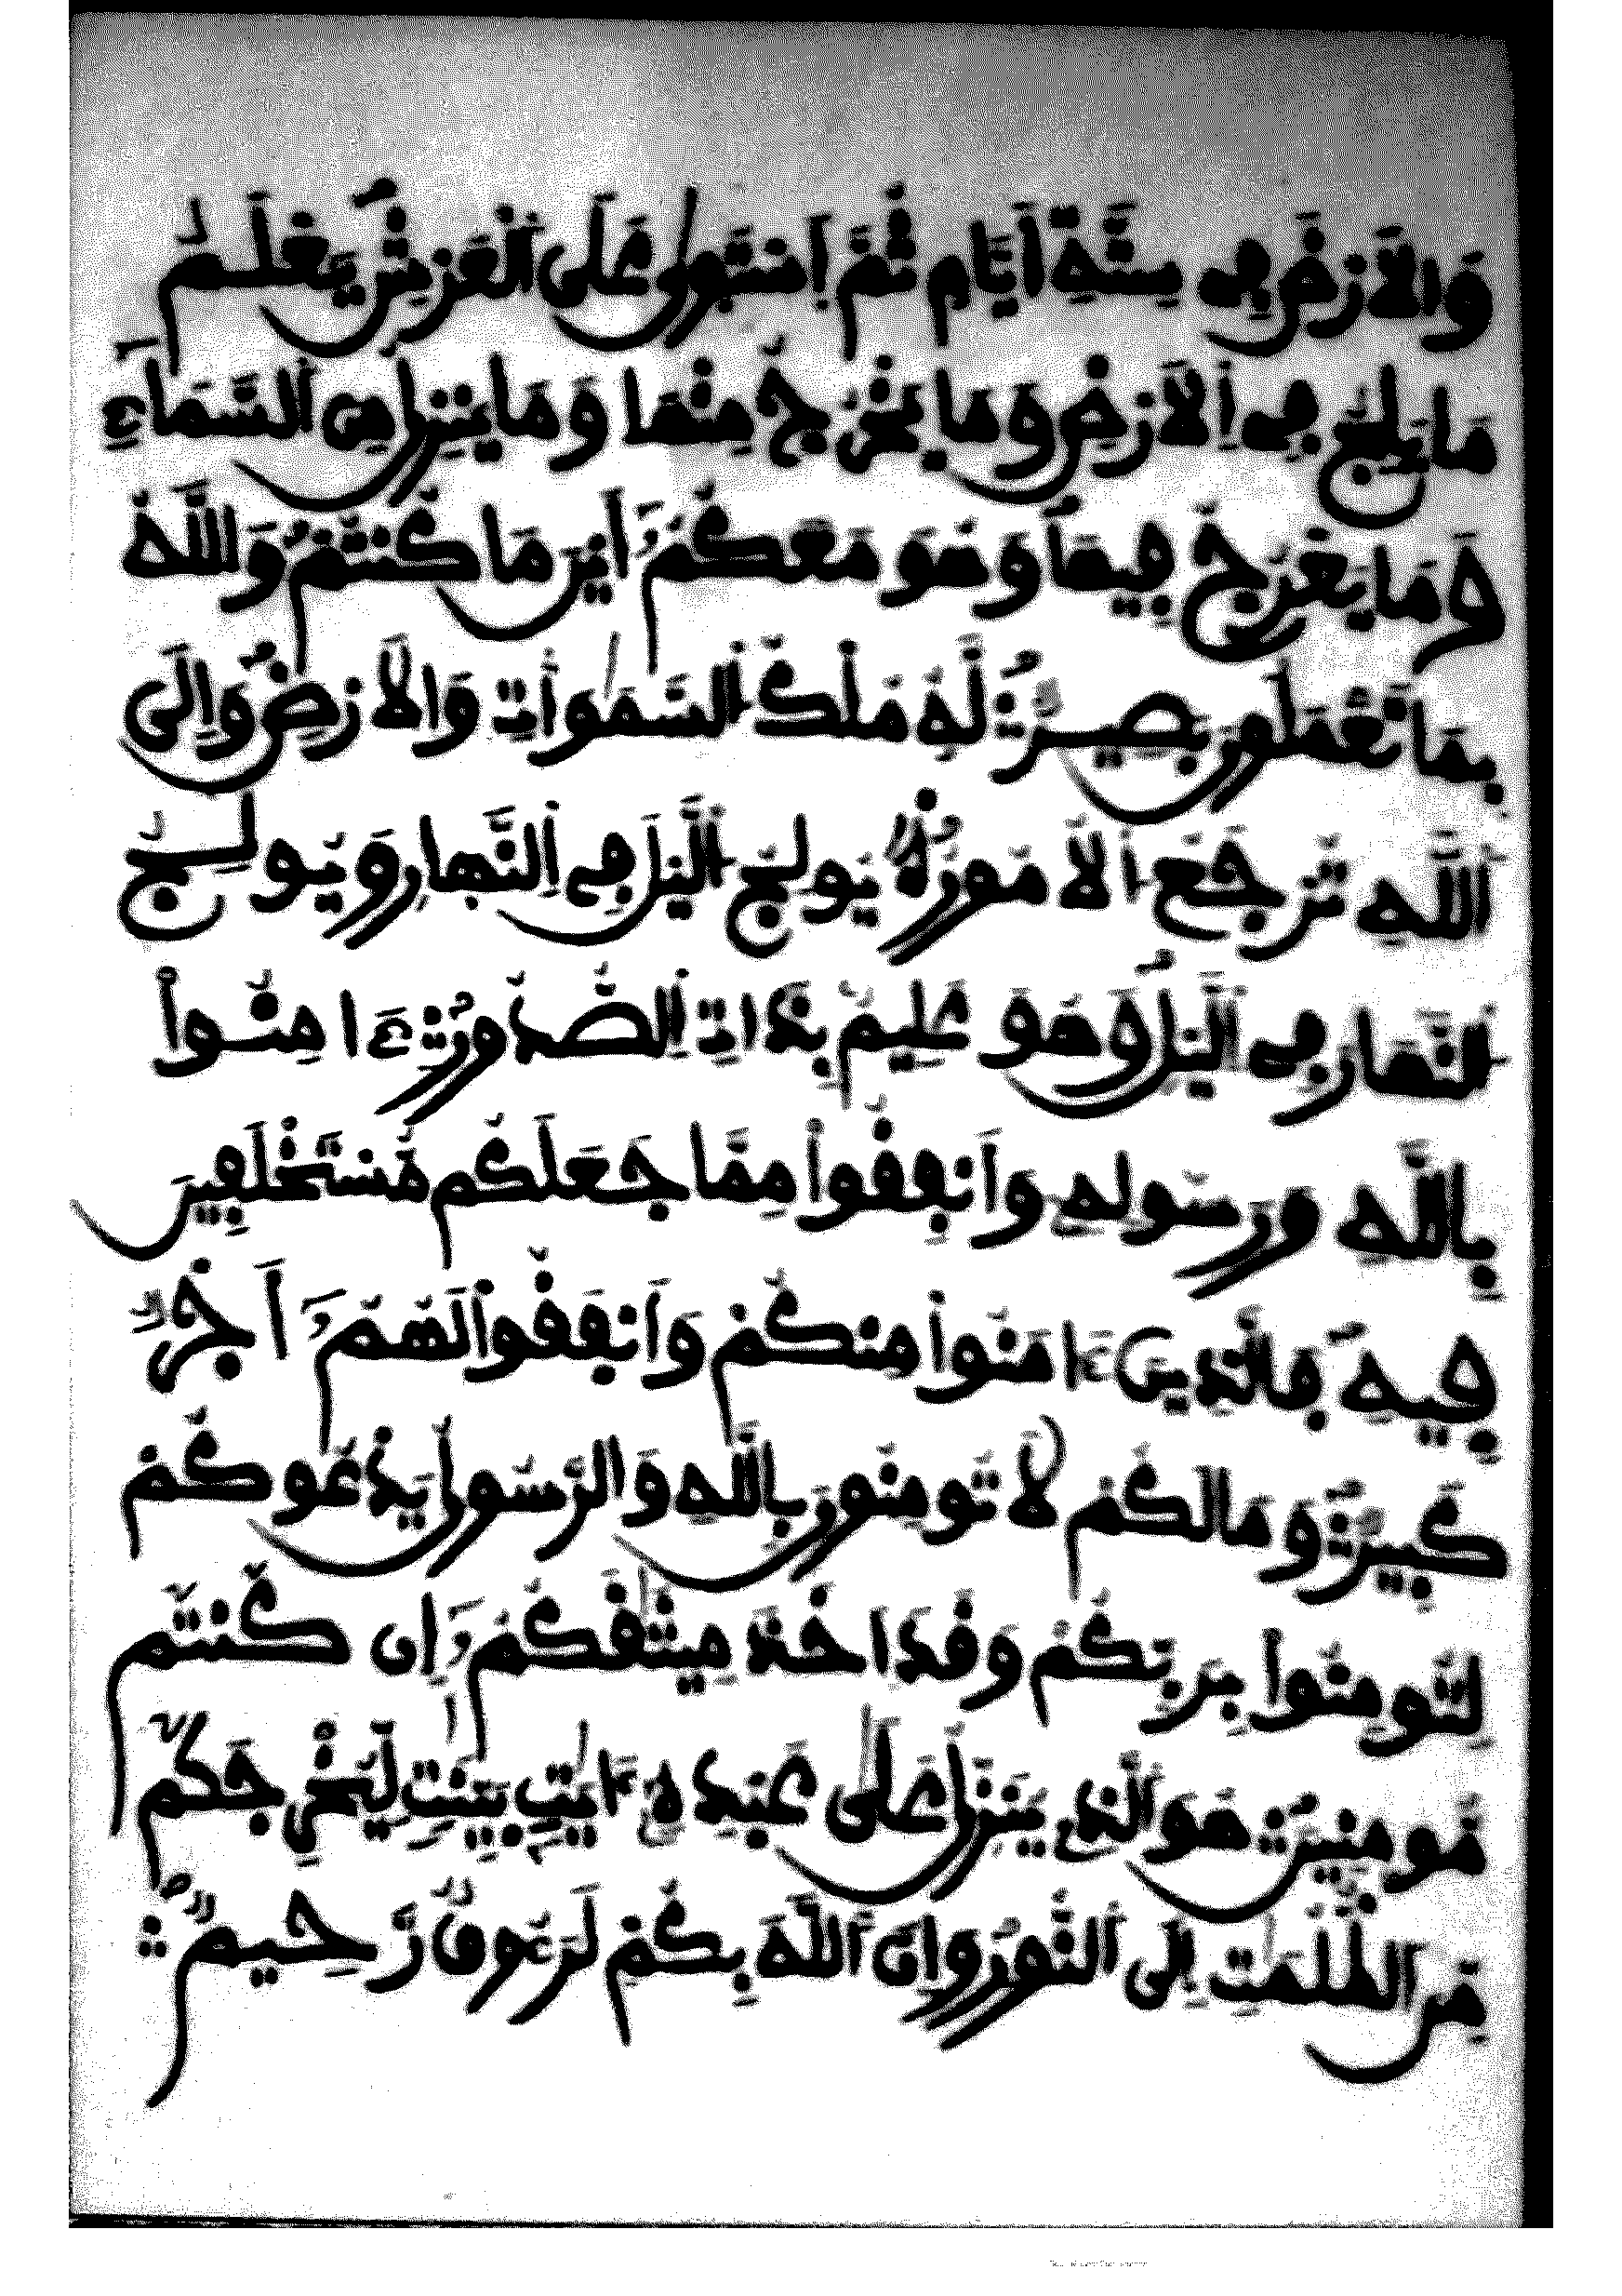 وَالَارْضَ فِي سِتَّةِ أَيَّامٍ ثُمَّ اَسْتَوَىٰ عَلَى اَلْعَرْشِ يَعْلَمُ
مَا يَلِجُ فِي اِلَارْضِ وَمَا يَخْرُجُ مِنْهَا وَمَا يَنزِلُ مِنَ اَلسَّمَآءِ
وَمَا يَعْرُجُ فِيهَا وَهُوَ مَعَكُمُۥٓ أَيْنَ مَا كُنتُمْ وَاللَّهُ
بِمَا تَعْمَلُونَ بَصِيرٌ لَّهُ مُلْكُ اُلسَّمَٰوَاتِ وَالَارْضِ وَإِلَى
اَللَّهِ تُرْجَعُ اُلُامُورُ يُولِجُ اُلَّيْلَ فِي اِلنَّهَارِ وَيُولِجُ
اُلنَّهَارَ فِي اِلَّيْلِ وَهُوَ عَلِيمٌ بِذَاتِ اِلصُّدُورِ ءَامِنُواْ
بِاللَّهِ وَرَسُولِهِ وَأَنفِقُواْ مِمَّا جَعَلَكُم مُّسْتَخْلَفِينَ
فِيهِ فَالَّذِينَ ءَامَنُواْ مِنكُمْ وَأَنفَقُواْ لَهُمُۥٓ أَجْرٌ
كَبِيرٌ وَمَا لَكُمْ لَا تُومِنُونَ بِاللَّهِ وَالرَّسُولُ يَدْعُوكُمْ
لِتُومِنُواْ بِرَبِّكُمْ وَقَدَ اَخَذَ مِيثَٰقَكُمُۥٓ إِن كُنتُم
مُّومِنِينَ هُوَ الَّذِي يُنَزِّلُ عَلَىٰ عَبْدِهِۦٓ ءَايَٰتٍ بَيِّنَٰتٍ لِّيُخْرِجَكُم
مِّنَ اَلظُّلُمَٰتِ إِلَى اَلنُّورِ وَإِنَّ اَللَّهَ بِكُمْ لَرَءُوفٌ رَّحِيمٌ